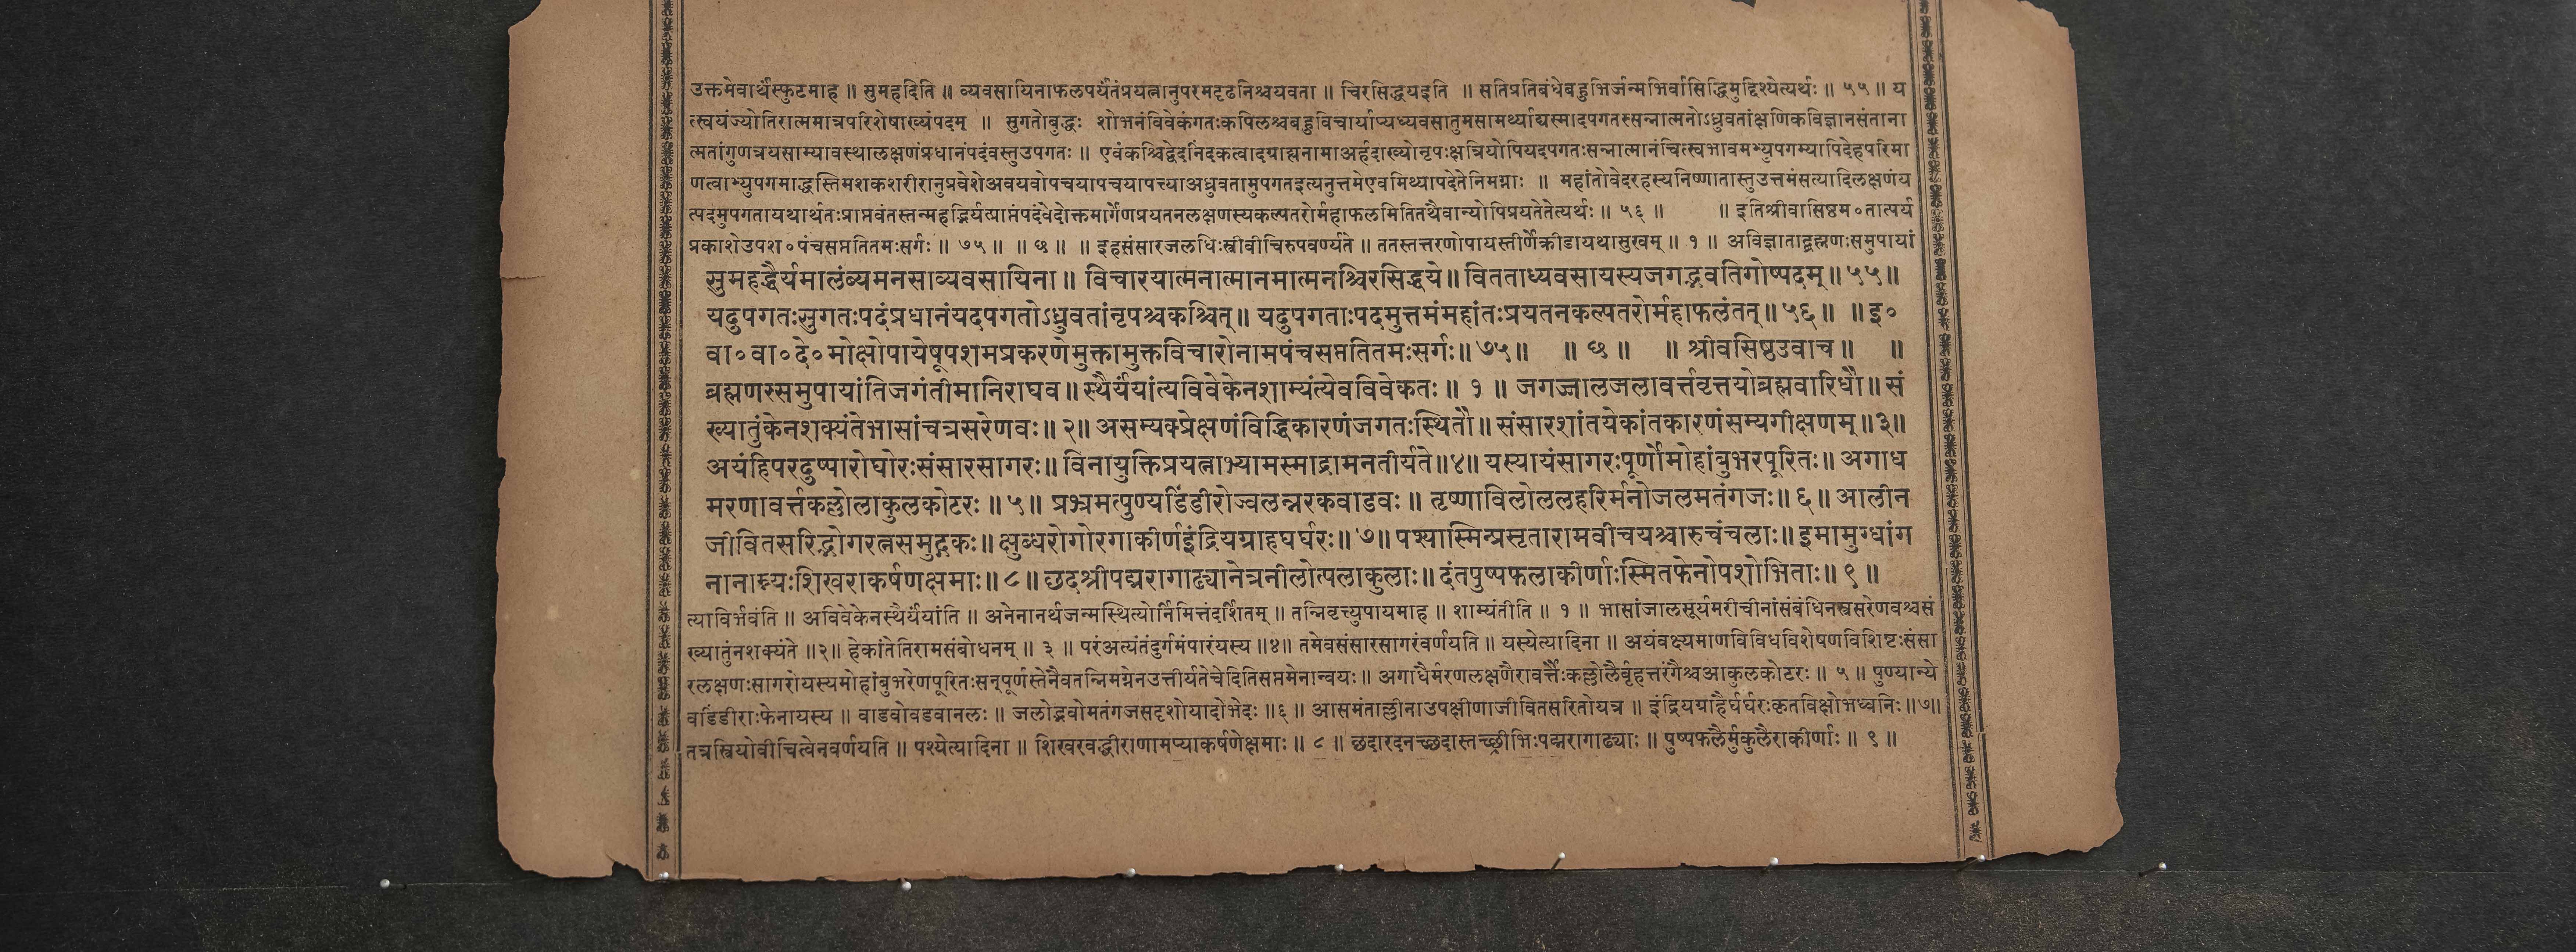 उक्तमेवार्थंस्फुटमाह ॥ सुमहदिति ॥ व्यवसायिनाफलपर्यंतंप्रयत्नानुपरमदृढनिश्चयवता ॥ चिरसिद्धयइति ॥ सतिप्रतिबंधेबहुभिर्जन्मभिर्वासिद्धिमुद्दिश्येत्यर्थः ॥ ५५ ॥ य
त्स्वयंज्योतिरात्ममात्रपरिशेषाख्यंपदम् ॥ सुगतोबुद्धः शोभनंविवेकंगतःकपिलश्चबहुविचार्याप्यध्यवसातुमसामर्थ्याद्यस्मादपगतस्सन्नात्मनोऽध्रुवतांक्षणिकविज्ञानसंताना
त्मतांगुणत्रयसाम्यावस्थालक्षणंप्रधानंपदंवस्तुउपगतः ॥ एवंकश्चिद्वेदनिंदकत्वादग्राह्यनामाअर्हदाख्योनृपःक्षत्रियोपियदपगतःसन्नात्मानंचित्स्वभावमभ्युपगम्यापिदेहपरिमा
णत्वाभ्युपगमाद्धस्तिमशकशरीरानुप्रवेशेअवयवोपचयापचयापत्त्याअध्रुवतामुपगतइत्यनुत्तमेएवमिथ्यापदेतेनिमग्नाः ॥ महांतोवेदरहस्यनिष्णातास्तुउत्तमंसत्यादिलक्षणंय
त्पदमुपगतायथार्थतःप्राप्तवंतस्तन्महद्भिर्यत्प्राप्तंपदंवेदोक्तमार्गेणप्रयतनलक्षणस्यकल्पतरोर्महाफलमितितथैवान्योपिप्रयतेतेत्यर्थः ॥ ५६ ॥ ॥ इतिश्रीवासिष्ठम॰तात्पर्य
प्रकाशेउपश॰पंचसप्ततितमःसर्गः ॥ ७५ ॥ ॥ छ ॥ ॥ इहसंसारजलधिःस्त्रीवीचिरुपवर्ण्यते ॥ ततस्तत्तरणोपायस्तीर्णेक्रीडायथासुखम् ॥ १ ॥ अविज्ञाताद्ब्रह्मणःसमुपायां
सुमहद्धैर्यमालंब्यमनसाव्यवसायिना ॥ विचारयात्मनात्मानमात्मनश्चिरसिद्धये ॥ वितताध्यवसायस्यजगद्भवतिगोष्पदम् ॥ ५५ ॥
यदुपगतःसुगतःपदंप्रधानंयदपगतोऽध्रुवतांनृपश्चकश्चित् ॥ यदुपगताःपदमुत्तमंमहांतःप्रयतनकल्पतरोर्महाफलंतत् ॥ ५६ ॥ ॥ इ॰
वा॰वा॰दे॰मोक्षोपायेषूपशमप्रकरणेमुक्तामुक्तविचारोनामपंचसप्ततितमःसर्गः ॥ ७५ ॥ ॥ छ ॥ ॥ श्रीवसिष्ठउवाच ॥ ॥
ब्रह्मणस्समुपायांतिजगंतीमानिराघव ॥ स्थैर्यंयांत्यविवेकेनशाम्यंत्येवविवेकतः ॥ १ ॥ जगज्जालजलावर्त्तवृत्तयोब्रह्मवारिधौ ॥ सं
ख्यातुंकेनशक्यंतेभासांचत्रसरेणवः ॥ २ ॥ असम्यक्प्रेक्षणंविद्धिकारणंजगतःस्थितौ ॥ संसारशांतयेकांतकारणंसम्यगीक्षणम् ॥ ३ ॥
अयंहिपरदुष्पारोघोरःसंसारसागरः ॥ विनायुक्तिप्रयत्नाभ्यामस्माद्रामनतीर्यते ॥ ४ ॥ यस्यायंसागरःपूर्णोमोहांबुभरपूरितः ॥ अगाध
मरणावर्त्तकल्लोलाकुलकोटरः ॥ ५ ॥ प्रभ्रमत्पुण्यडिंडीरोज्वलन्नरकवाडवः ॥ तृष्णाविलोललहरिर्मनोजलमतंगजः ॥ ६ ॥ आलीन
जीवितसरिद्भोगरत्नसमुद्गकः ॥ क्षुब्धरोगोरगाकीर्णइंद्रियग्राहघर्घरः ॥ ७ ॥ पश्यास्मिन्प्रसृतारामवीचयश्चारुचंचलाः ॥ इमामुग्धांग
नानाम्न्यःशिखराकर्षणक्षमाः ॥ ८ ॥ छदश्रीपद्मरागाढ्यानेत्रनीलोत्पलाकुलाः ॥ दंतपुष्पफलाकीर्णाःस्मितफेनोपशोभिताः ॥ ९ ॥
त्याविर्भवंति ॥ अविवेकेनस्थैर्यंयांति ॥ अनेनानर्थजन्मस्थित्योर्निमित्तंदर्शितम् ॥ तन्निवृत्त्युपायमाह ॥ शाम्यंतीति ॥ १ ॥ भासांजालसूर्यमरीचीनांसंबंधिनस्त्रसरेणवश्चसं
ख्यातुंनशक्यंते ॥२॥ हेकांतेतिरामसंबोधनम् ॥ ३ ॥ परंअत्यंतंदुर्गमंपारंयस्य ॥४॥ तमेवसंसारसागरंवर्णयति ॥ यस्येत्यादिना ॥ अयंवक्ष्यमाणविविधविशेषणविशिष्टःसंसा
रलक्षणःसागरोयस्यमोहांबुभरेणपूरितःसन्पूर्णस्तेनैवतन्निमग्नेनउत्तीर्यतेचेदितिसप्तमेनान्वयः ॥ अगाधैर्मरणलक्षणैरावर्त्तैःकल्लोलैर्बृहत्तरंगैश्चआकुलकोटरः ॥ ५ ॥ पुण्यान्ये
वडिंडीराःफेनायस्य ॥ वाडवोवडवानलः ॥ जलोद्भवोमतंगजसदृशोयादोभेदः ॥६॥ आसमंताल्लीनाउपक्षीणाजीवितसरितोयत्र ॥ इंद्रियग्राहैर्घर्घरःकृतविक्षोभध्वनिः ॥७॥
तत्रस्त्रियोवीचित्वेनवर्णयति ॥ पश्येत्यादिना ॥ शिखरवद्धीराणामप्याकर्षणेक्षमाः ॥ ८ ॥ छदारदनच्छदास्तच्छ्रीभिःपद्मरागाढ्याः ॥ पुष्पफलैर्मुकुलैराकीर्णाः ॥ ९ ॥